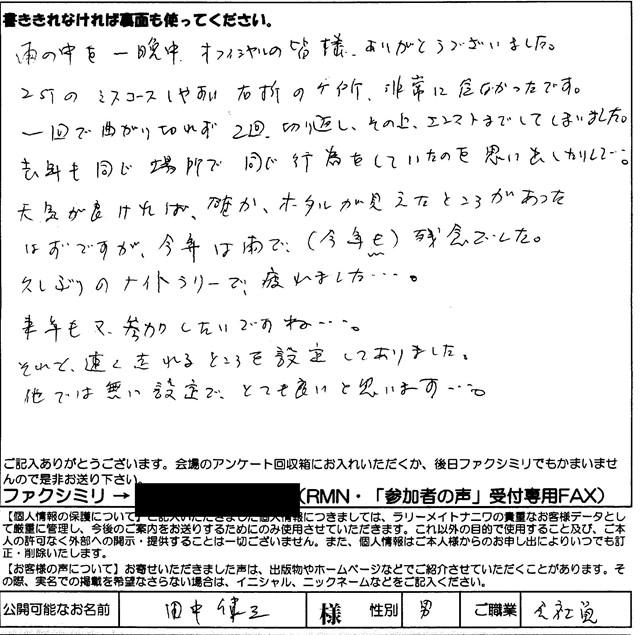 書ききれなければ裏面も使ってください。
雨の中を一晩中、オフィシャルの皆様、ありがとうございました。
2STのミスコースしやすい右折のケ所、非常に危なかったです。
一回で曲がり切れず2回、切り返し、その上、エンストまでしてしまいました。
去年も同じ場所で同じ行為をしていたのを思い出しかりして…。
天気が良ければ、確か、ホタルが見えたところがあった
はずですが、今年は雨で、(今年も)残念でした。
久しぶりのナイトラリーで、疲れました……。
来年も又、参加したいですね……。
それと、速く走れるところを設定してありました。
他では無い設定で、とても良いと思います……。
ご記入ありがとうございます。会場のアンケート回収箱にお入れいただくか、後日ファクシミリでもかまいませ
んので是非お送り下さい。
ファクシミリ → (RMN・「参加者の声」受付専用FAX)
【個人情報の保護について】ご記入いただきました個人情報につきましては、ラリーメイトナニワの貴重なお客様データとし
て厳重に管理し、今後のご案内をお送りするためにのみ使用させていただきます。これ以外の目的で使用すること及び、ご本
人の許可なく外部への開示・提供することは一切ございません。また、個人情報はご本人様からのお申し出によりいつでも訂
正・削除いたします。
【お客様の声について】お寄せいただきました声は、出版物やホームページなどでご紹介させていただくことがあります。そ
の際、実名での掲載を希望なさらない場合は、イニシャル、ニックネームなどをご記入ください。
公開可能なお名前 田中 健 様 性別 男 ご職業 会社員